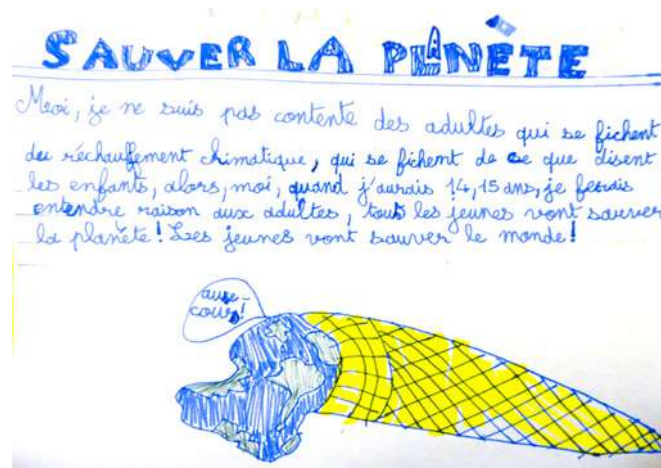 SAUVER LA PLANÈTE
Moi, je ne suis pas contente des adultes qui se fichent
du réchauffement chimatique, qui se fichent de ce que disent
les enfants, alors, moi, quand j'aurais 14, 15 ans, je ferais
entendre raison aux adultes, tous les jeunes vont sauver
la planète! Les jeunes vont sauver le monde!
au se-
cours!